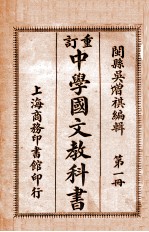 閩縣吳增祺編輯
第一冊
重訂
中學國文教科書
上海商務印書館印行